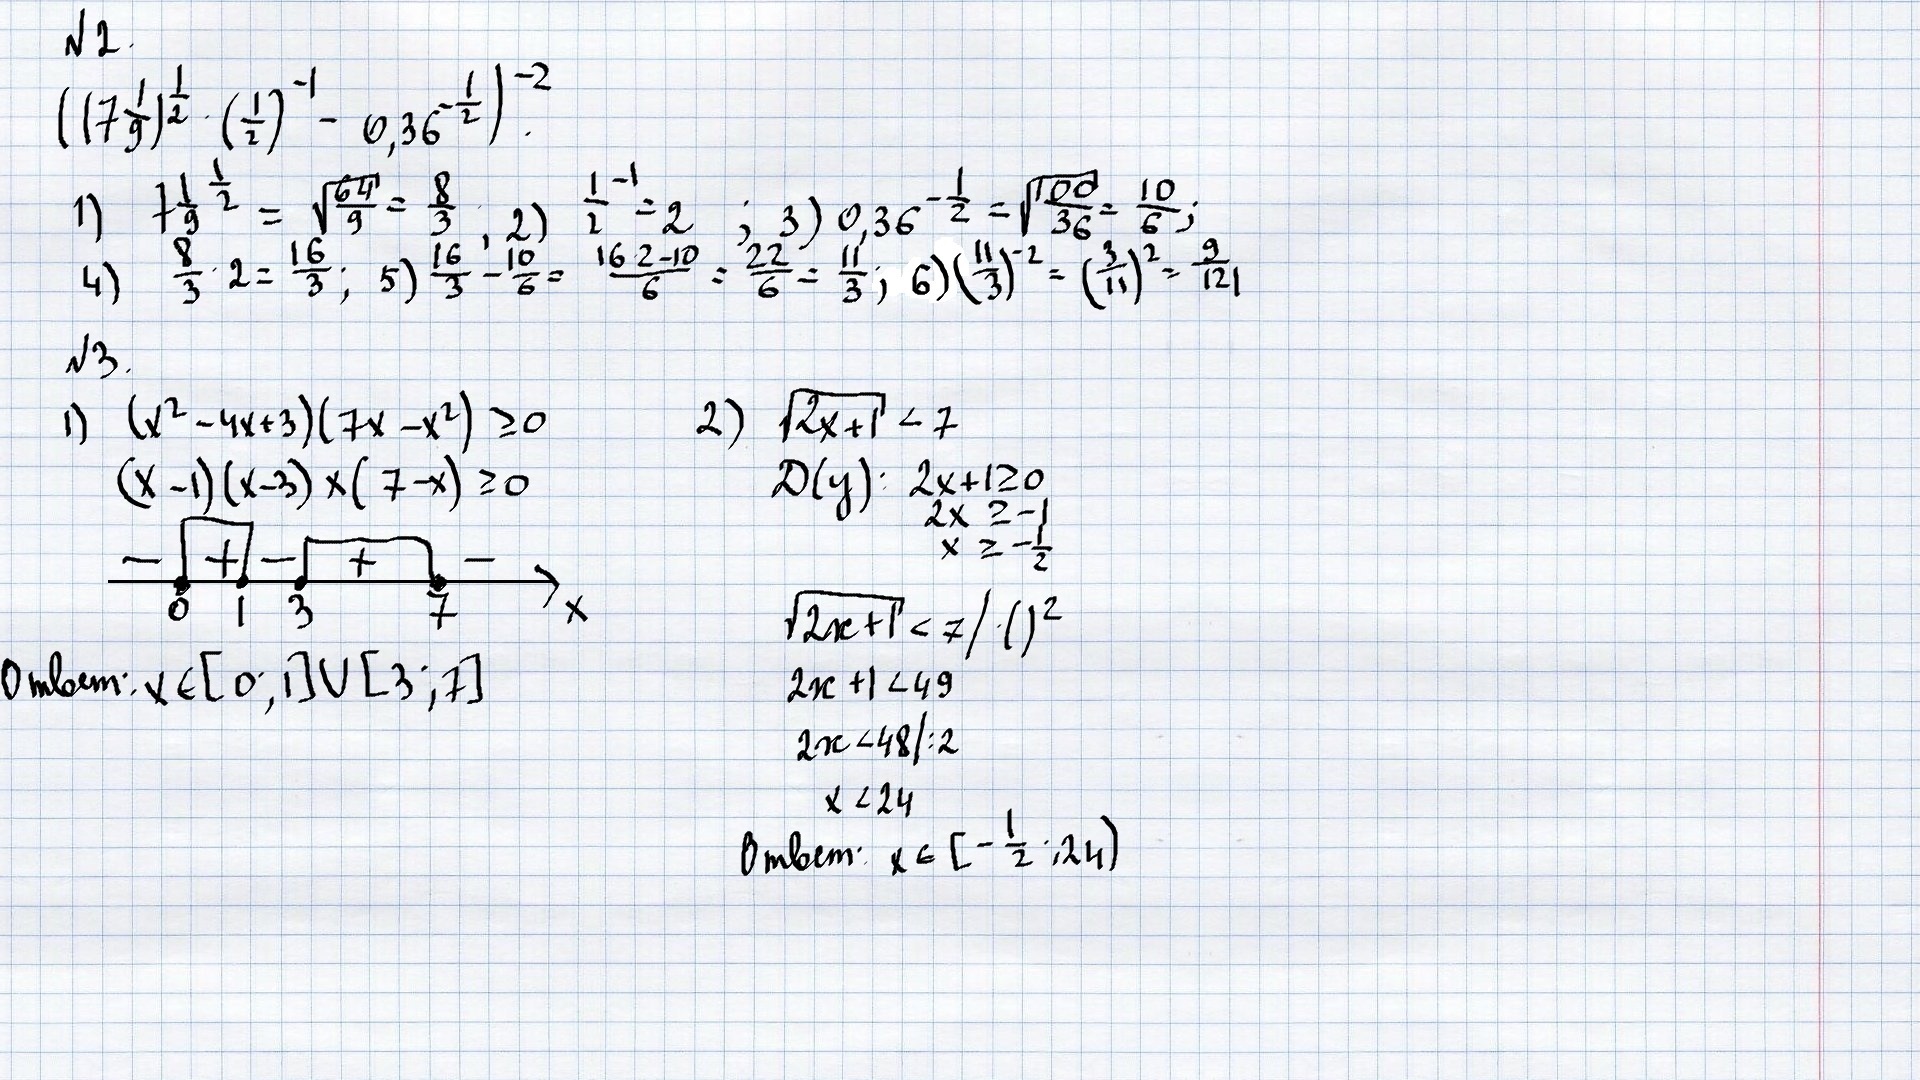 №2.
((7 1/9)^(1/2) · (1/2)^(-1) - 0,36^(-1/2))^(-2).
1) 7 1/9^(1/2) = √(64/9) = 8/3, 2) 1/2^(-1) = 2 ; 3) 0,36^(-1/2) = √(100/36) = 10/6;
4) 8/3 · 2 = 16/3; 5) 16/3 - 10/6 = (16·2-10)/6 = 22/6 = 11/3; 6) (11/3)^(-2) = (3/11)^2 = 9/121
№3.
1) (x² - 4x+3)(7x - x²) ≥ 0
(x-1)(x-3) x(7-x) ≥ 0
- + - + -
0 1 3 7 x
Ответ: x ∈ [0;1]∪[3;7]
2) √(2x+1) < 7
D(y): 2x+1≥0
2x ≥ -1
x ≥ -1/2
√(2x+1) < 7 /·()²
2x+1<49
2x<48/:2
x<24
Ответ: x ∈ [-1/2;24)